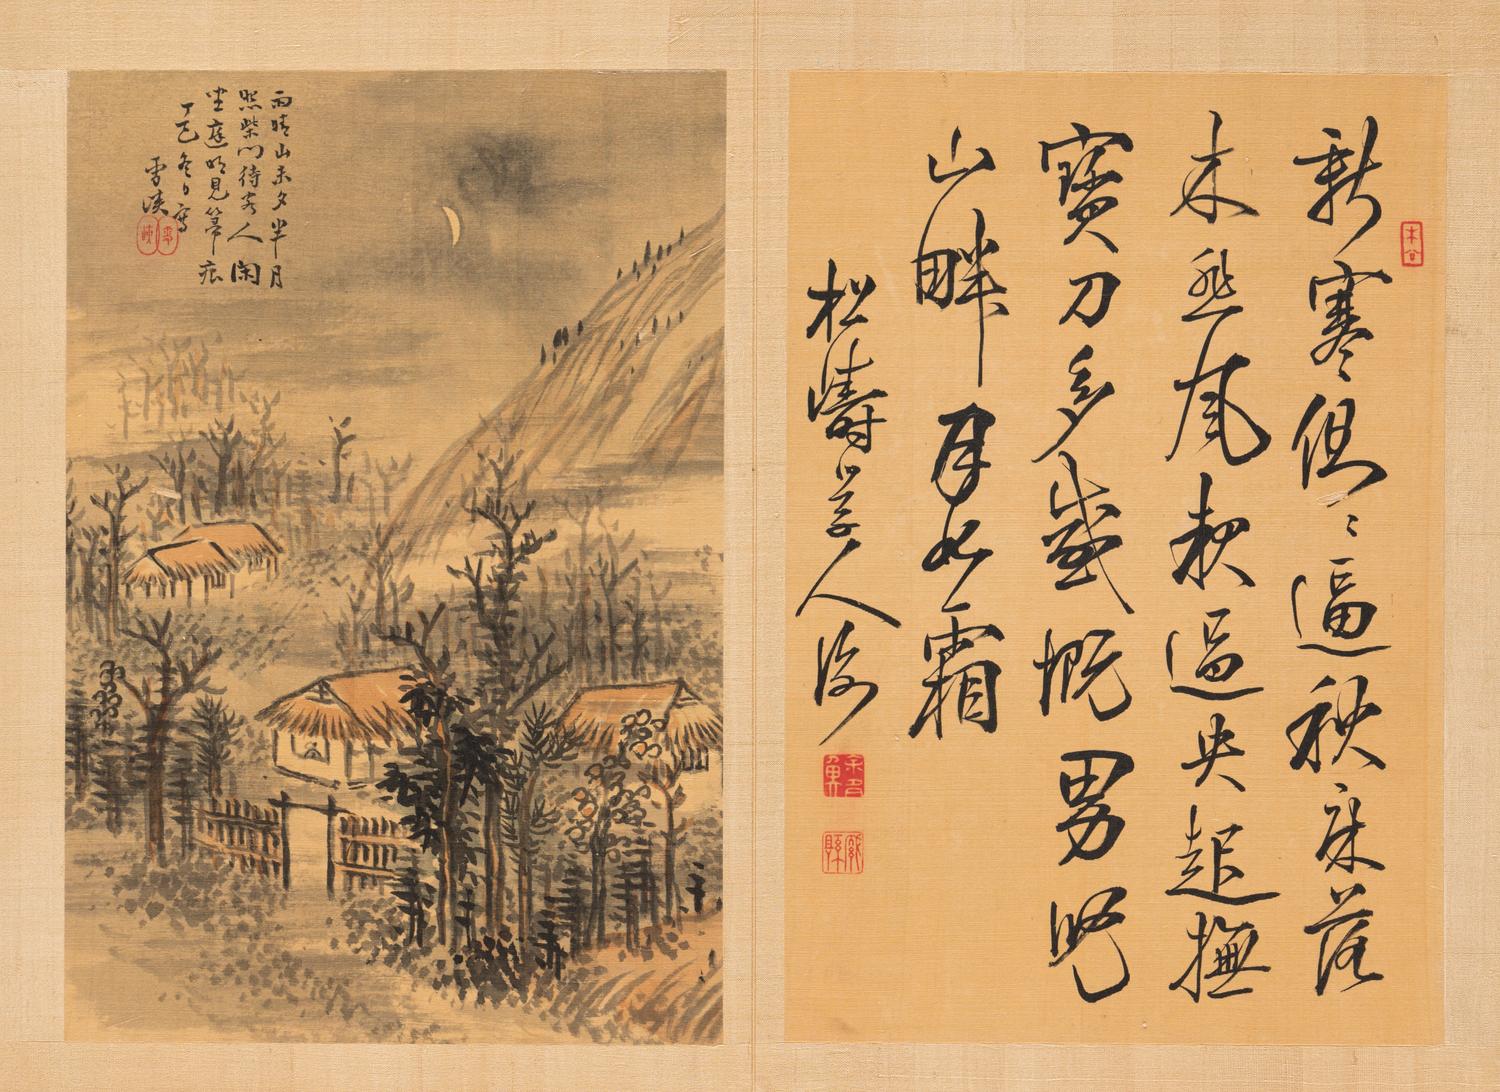 雨晴山未夕半月
照柴門待客人閑
坐庭明見箒痕
丁巳冬日寫
雪
木公
新寒逼秋床落
木悲風夜過央起撫
寶刀多感慨男兒
山畔月如霜
松濤学人